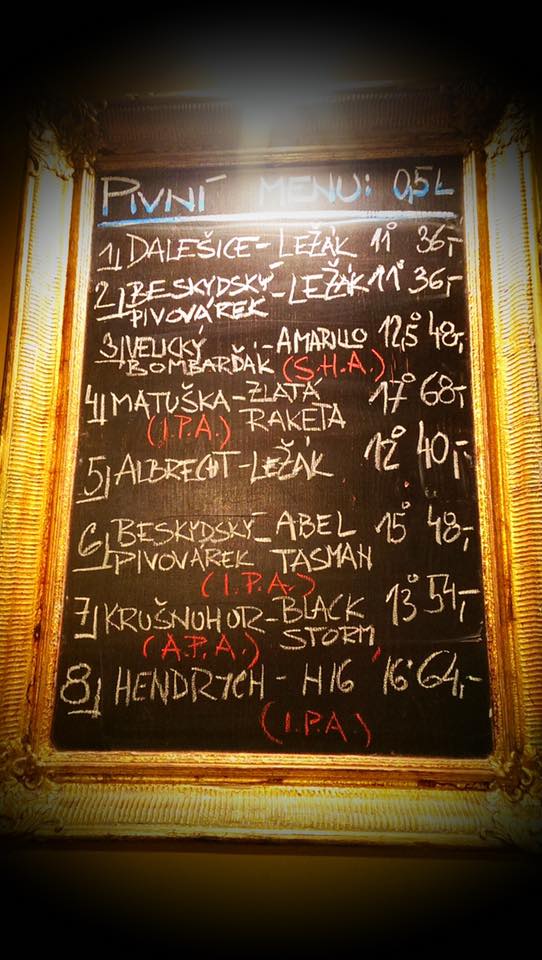 PIVNÍ MENU: 0,5L
1) DALEŠICE - LEŽÁK 11° 36,-
2) BESKYDSKÝ - LEŽÁK 11° 36,-
PIVOVÁREK
3) VELICKÝ - AMARILLO 12,5° 48,-
BOMBARĎÁK (S.H.A.)
4) MATUŠKA - ZLATÁ 17° 68,-
(I.P.A.) RAKETA
5) ALBRECHT - LEŽÁK 12° 40,-
6) BESKYDSKÝ - ABEL 15° 48,-
PIVOVÁREK TASMAN
(I.P.A.)
7) KRUŠNOHOR - BLACK 13° 54,-
(A.P.A.) STORM
8) HENDRYCH - H16 16° 64,-
(I.P.A.)